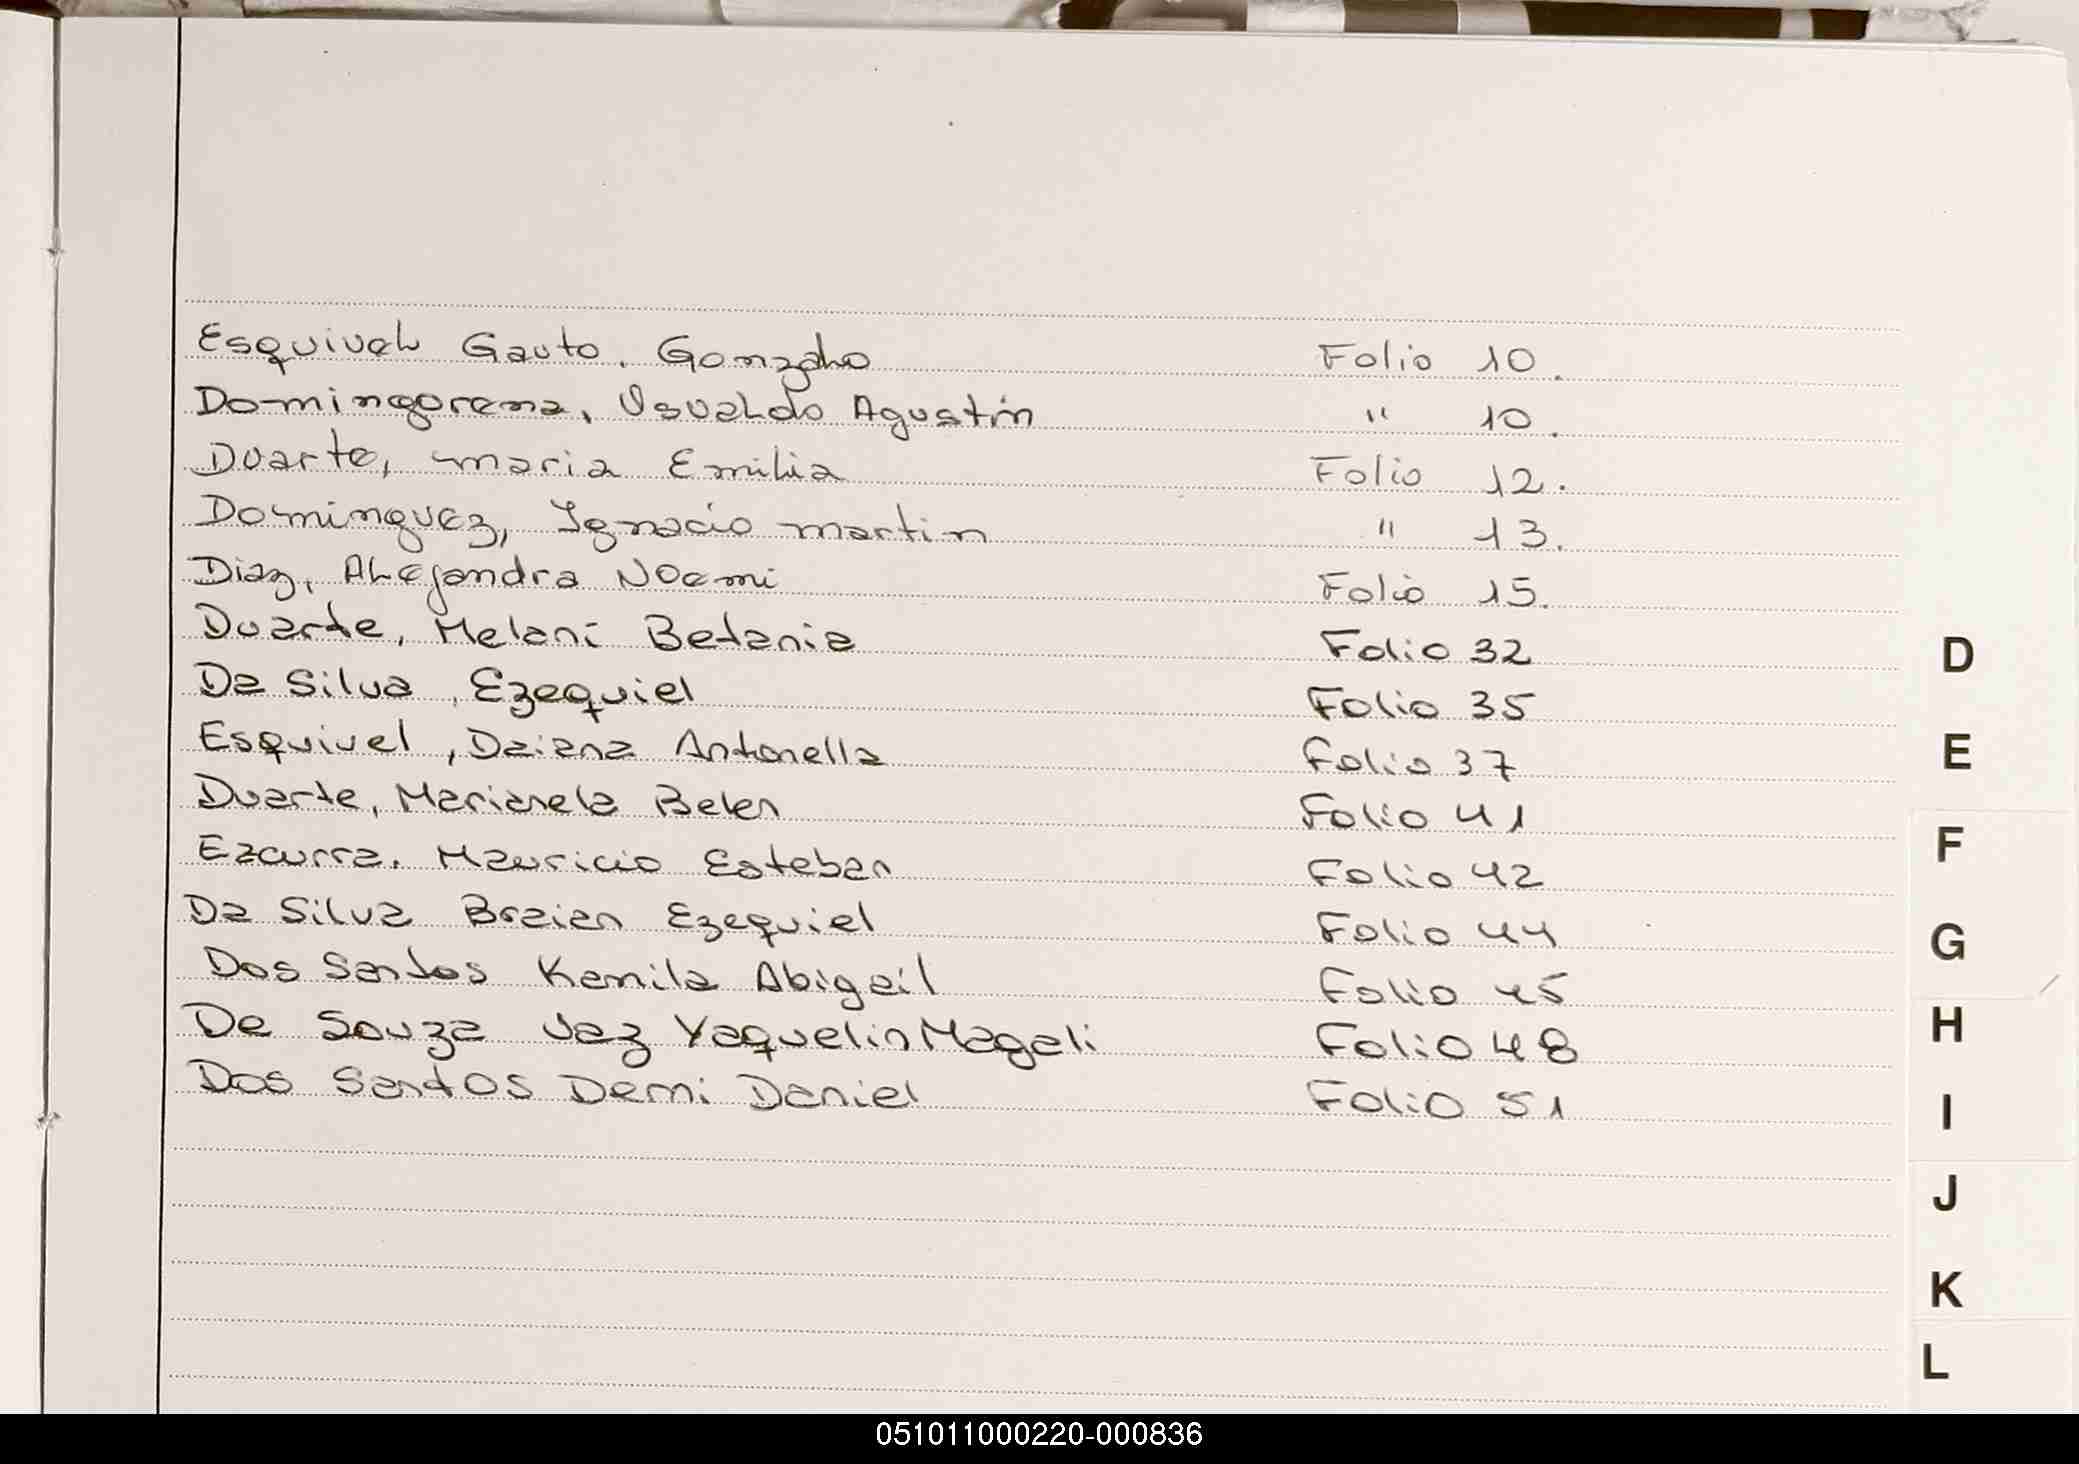 Esquivel Gauto. Gonzalo Folio 10.
Domingorena, Osvaldo Agustín " 10.
Duarte, maria Emilia Folio 12.
Dominguez, Ignacio martin " 13.
Diaz, Alejandra Noemi Folio 15.
Duarte, Melani Betania Folio 32
Da Silva, Ezequiel Folio 35
Esquivel, Daiana Antonella Folio 37
Duarte, Marianela Belen Folio 41
Ezcurra. Mauricio Esteban Folio 42
Da Silva Braian Ezequiel Folio 44
Dos Santos Kamila Abigail Folio 45
De Souza Vaz Yaquelin Magali Folio 48
Dos Santos Demi Daniel Folio 51
D
E
F
G
H
I
J
K
L
051011000220-000836